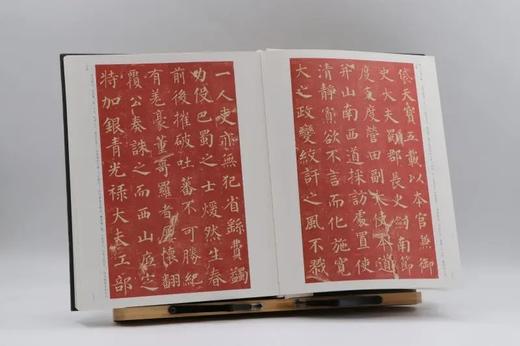 天寶五載以本官兼御
史大夫蜀郡長史劍南節
度支度營田副大使本道
并山南西道採訪處置使
清靜寡欲不言而化施寬
大之政變絞訐之風不戮
一人吏亦無犯省繇費蠲
功役巴蜀之士煖然生春
前後摧破吐蕃不可勝紀
有羌豪董哥羅者屢懷翻
覆公奏誅之而西山底定
特加銀青光祿大夫工部